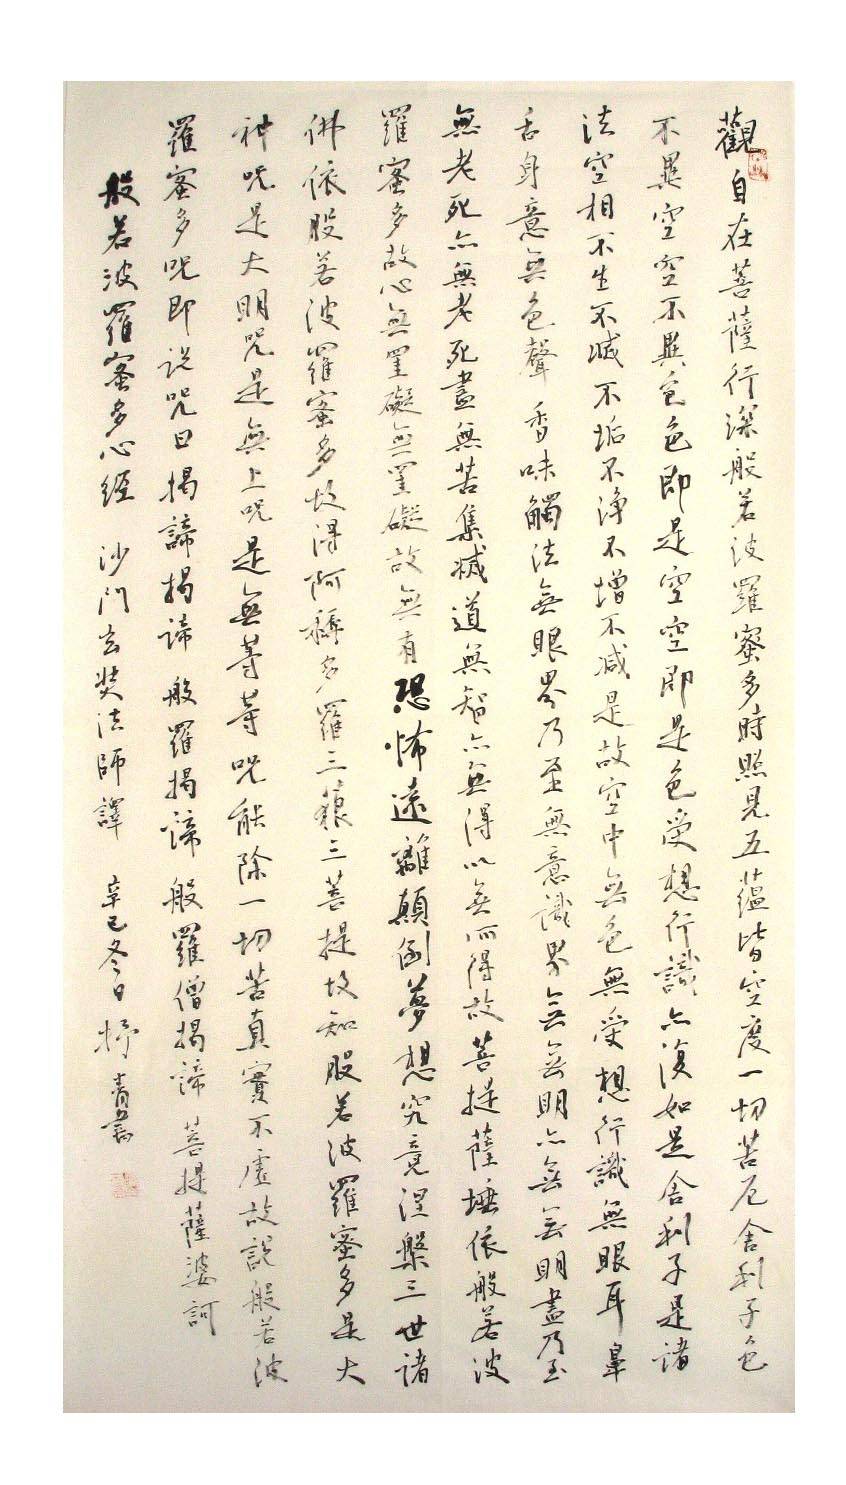 觀自在菩薩行深般若波羅蜜多時照見五蘊皆空度一切苦厄舍利子色
不異空空不異色色即是空空即是色受想行識亦復如是舍利子是諸
法空相不生不滅不垢不淨不增不減是故空中無色無受想行識無眼耳鼻
舌身意無色聲香味觸法無眼界乃至無意識界無無明亦無無明盡乃至
無老死亦無老死盡無苦集滅道無智亦無得以無所得故菩提薩埵依般若波
羅蜜多故心無罣礙無罣礙故無有恐怖遠離顛倒夢想究竟涅槃三世諸
佛依般若波羅蜜多故得阿耨多羅三藐三菩提故知般若波羅蜜多是大
神呪是大明呪是無上呪是無等等呪能除一切苦真實不虛故說般若波
羅蜜多呪即說呪曰揭諦揭諦 般羅揭諦 般羅僧揭諦 菩提薩婆訶
般若波羅蜜多心經 沙門玄奘法師譯 辛巳冬日 抒青書